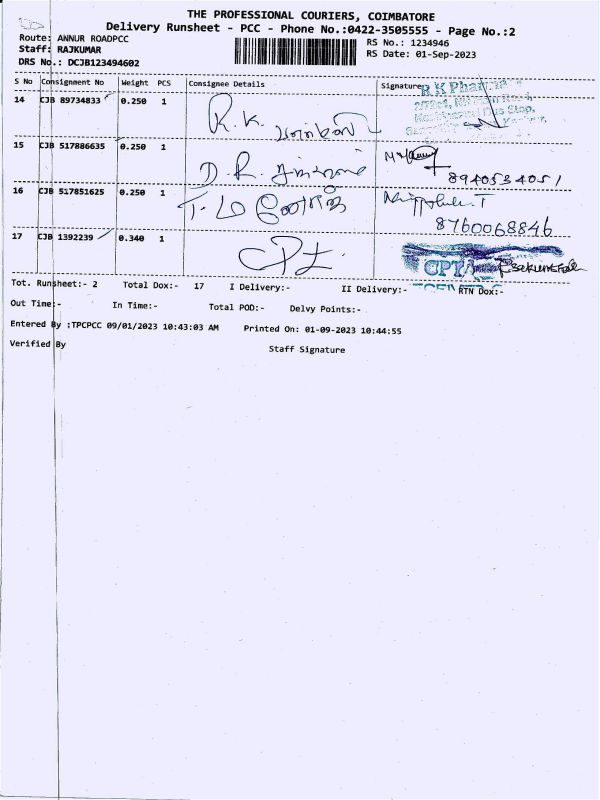 THE PROFESSIONAL COURIERS, COIMBATORE
Delivery Runsheet - PCC - Phone No.:0422-3505555 - Page No.:2
Route: ANNUR ROADPCC
RS No.: 1234946
Staff: RAJKUMAR
RS Date: 01-Sep-2023
DRS No.: DCJB123494602
S No Consignment No Weight PCS Consignee Details Signature
14 CJB 89734833 0.250 1 R.K. R K Pharma
15 CJB 517886635 0.250 1 D.R. 8940534051
16 CJB 517851625 0.250 1 T. 8760068846
17 CJB 1392239 0.340 1 CPL
Tot. Runsheet:- 2 Total Dox:- 17 I Delivery:- II Delivery:- RTN Dox:-
Out Time:- In Time:- Total POD:- Delvy Points:-
Entered By :TPCPCC 09/01/2023 10:43:03 AM Printed On: 01-09-2023 10:44:55
Verified By Staff Signature